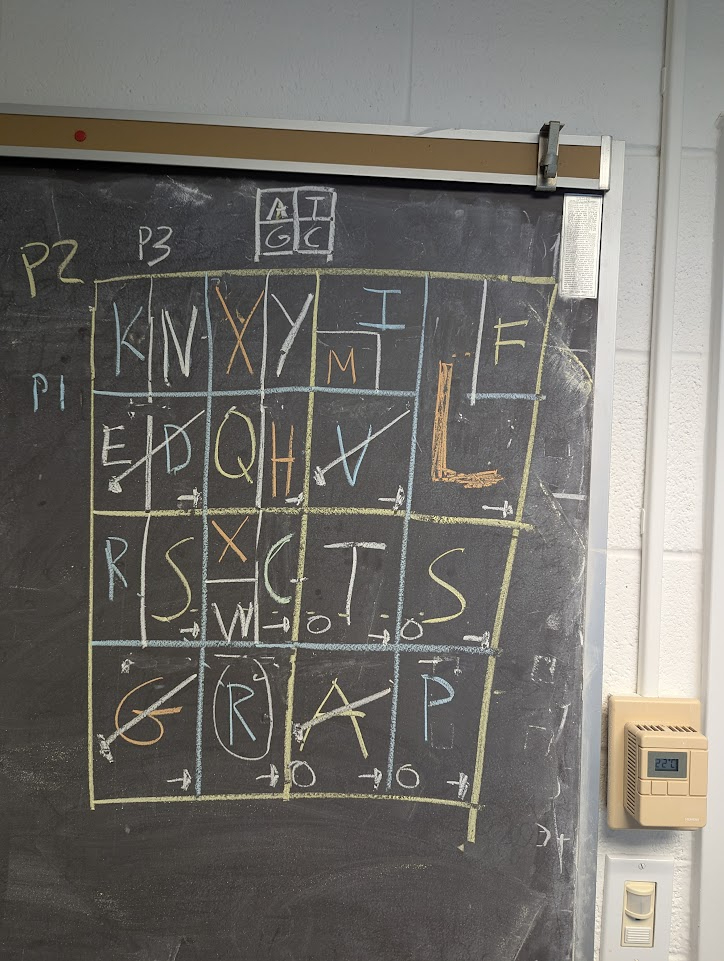 A T
G C
P2 P3
P1
K N X Y I F
M L
E D Q H V
R S X C T S
W
0 0
G R A P
0 0
22°C